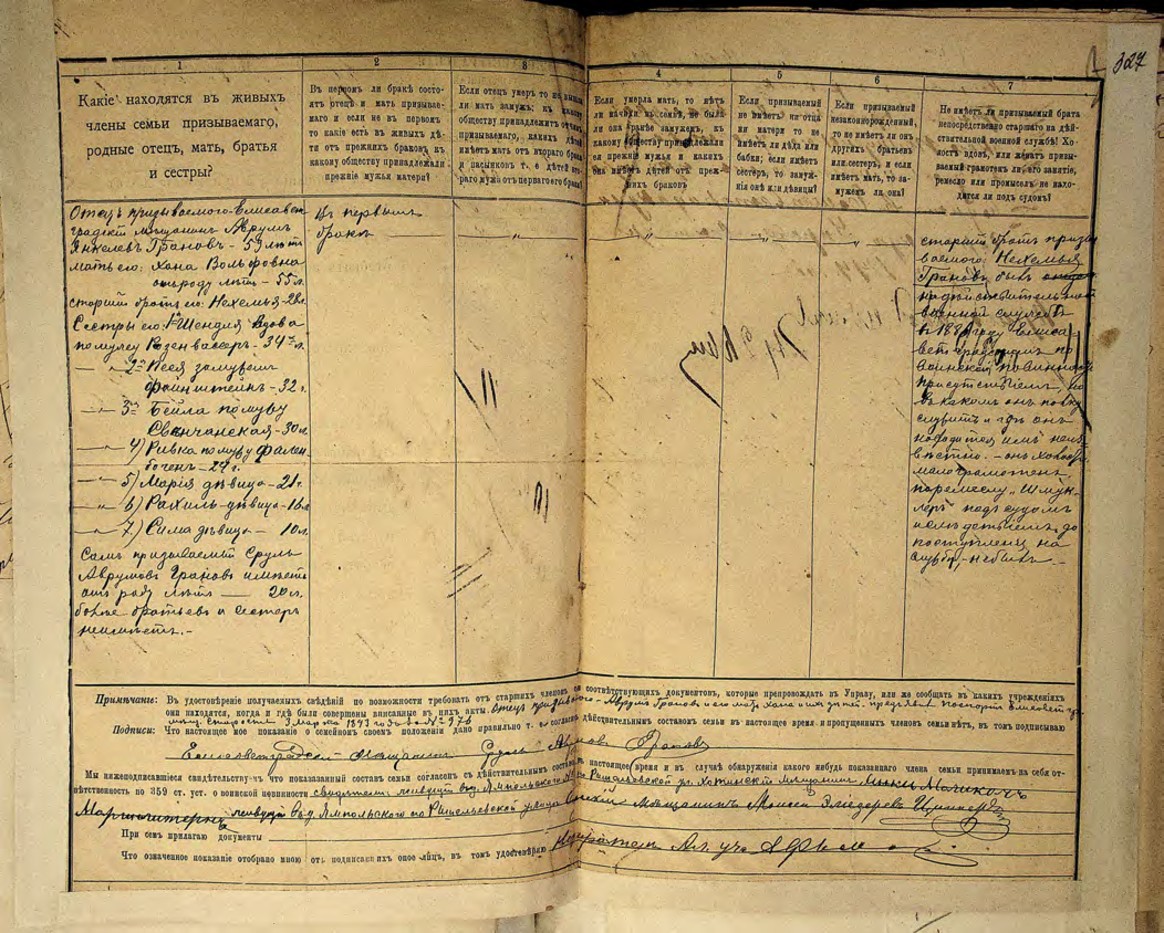 327
1
2
3
4
5
6
7
Какіе находятся въ живыхъ
члены семьи призываемаго,
родные отецъ, мать, братья
и сестры?
Въ первомъ ли бракѣ состо-
ятъ отецъ и мать призывае-
маго и если не въ первомъ
то какіе есть въ живыхъ дѣ-
ти отъ прежнихъ браковъ, къ
какому обществу принадлежали
прежніе мужья матери?
Если отецъ умеръ то не вышла
ли мать замужъ; къ какому
обществу принадлежитъ отчимъ
призываемаго, какихъ дѣтей
имѣетъ мать отъ втораго брака
и пасынковъ т. е. дѣтей вто-
раго мужа отъ перваго его брака?
Если умерла мать, то нѣтъ
ли мачихи въ семьѣ, не была-
ли она ранѣе замужемъ, къ
какому обществу принадлежали
ея прежніе мужья и какихъ
она имѣетъ дѣтей отъ преж-
нихъ браковъ
Если призываемый
не имѣетъ ни отца
ни матери то не
имѣетъ ли дѣда или
бабки; если имѣетъ
сестеръ, то замуж-
нія онѣ или дѣвицы?
Если призываемый
незаконнорожденный,
то не имѣетъ ли онъ
другихъ братьевъ
или сестеръ, и если
имѣетъ мать, то за-
мужемъ ли она?
Не имѣетъ ли призываемый брата
непосредственно старшаго на дѣй-
ствительной военной службѣ? Хо-
лостъ вдовъ, или женатъ призы-
ваемый грамотенъ ли, его занятіе,
ремесло или промыселъ не нахо-
дится ли подъ судомъ?
Отецъ призываемого Елисавет-
градскій мѣщанинъ Аврумъ
Янкелевъ Грановъ - 59 лѣтъ
мать его: Хана Вольфовна
отъ роду лѣтъ - 55 л.
старшій братъ его: Нехемья - 28 л.
Сестры его: 1я Шендля вдова
по мужу Розенвассеръ - 34 л.
— „ 2я Песя замужемъ
Файнштейнъ - 32 г.
— „ — 3я Бейла по мужу
Свенчанская - 30 л.
— „ — 4) Ривка по мужу
— „ — 5) Марія дѣвица - 21 г.
— „ — 6) Рахиль дѣвица - 16 л.
— „ — 7) Сима дѣвица — 10 л.
Самъ призываемый Сруль
Аврумовъ Грановъ имѣетъ
отъ роду лѣтъ — 20 л.
болѣе братьевъ и сестеръ
неимѣетъ. -
Въ первымъ
бракѣ
старшій братъ призы
ваемого: Нехемья
Грановъ былъ
на дѣйствительной
военной службѣ
въ году Елиса-
ветградскимъ по
воинской повинности
присутствіемъ, но
въ какомъ онъ полку
служитъ и гдѣ онъ
находится имъ неиз-
вѣстно. - онъ холостъ
малограмотенъ
поремеслу „Шмук-
леръ" подъ судомъ
и слѣдствіемъ до
поступленія на
службу, - небылъ. -
Примѣчаніе: Въ удостовѣреніе получаемыхъ свѣдѣній по возможности требовать отъ старшихъ членовъ соотвѣтствующихъ документовъ, которые препровождать въ Управу, или же сообщать въ какихъ учрежденіяхъ
они находятся, когда и гдѣ были совершены вписанные въ нихъ акты. Отецъ призываемого - Аврумъ Грановъ и его мать Хана
3 Марта 1893 года за № 976
Подписи: Что настоящее мое показаніе о семейномъ своемъ положеніи дано правильно т. е. согласно дѣйствительнымъ составомъ семьи въ настоящее время и пропущенныхъ членовъ семьи нѣтъ, въ томъ подписываю
Елисаветградскій мѣщанинъ Сруль Аврумовъ Грановъ
Мы нижеподписавшіеся свидѣтельствуемъ что показазанный составъ семьи согласенъ съ дѣйствительнымъ составомъ въ настоящее время и въ случаѣ обнаруженія какого нибудь показаннаго члена семьи принимаемъ на себя от-
вѣтственность по 359 ст. уст. о воинской повинности свидѣтели живущій въ д. Ямпольского по Ришельевской ул. Хотинскій мѣщанинъ
живущій въ д. Ямпольского по Ришельевской улицѣ мѣщанинъ Моисей
При семъ прилагаю документы
Что означенное показаніе отобрано мною отъ подписавшихъ оное лицъ, въ томъ удостовѣряю